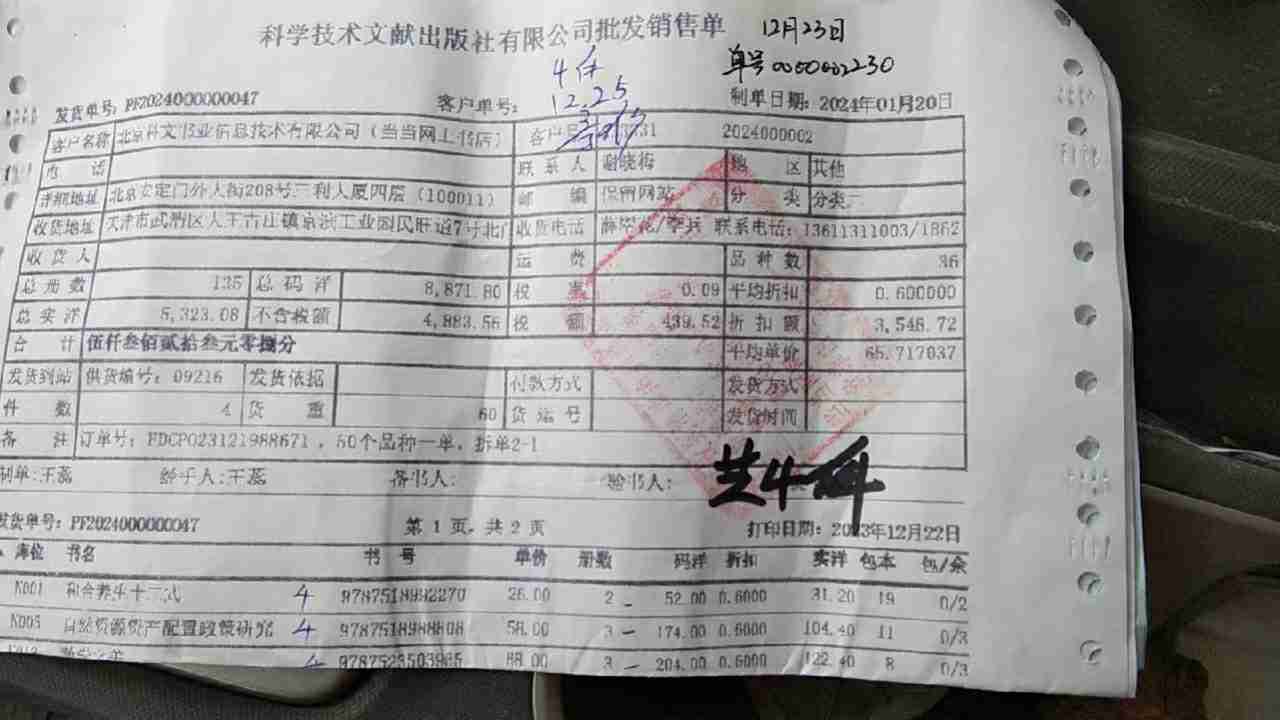 科学技术文献出版社有限公司批发销售单
12月23日
4件
单号0000002230
12.25
发货单号: PF2024000000047 客户单号: 制单日期: 2024年01月20日
客户名称 北京科文书业信息技术有限公司 (当当网上书店) 客户号 2024000002
电话 联系人 谢晓梅 地区 其他
详细地址 北京安定门外大街208号三利大厦四层 (100011) 邮编 保留网站 分类 分类二
收货地址 天津市武清区大王古庄镇京滨工业园民旺道7号北门 收货电话 联系电话: 13611311003/1862
收货人 运费 品种数 36
总册数 135 总码洋 8,871.80 税率 0.09 平均折扣 0.600000
总实洋 5,323.08 不含税额 4,883.56 税额 439.52 折扣额 3,548.72
合计 伍仟叁佰贰拾叁元零捌分 平均单价 65.717037
发货到站 供货编号: 09216 发货依据 付款方式 发货方式
件数 4 货重 60 货运号 发货时间
备注 订单号: FDCP023121988671, 50个品种一单, 拆单2-1
共4件
制单:王蕊 经手人:王蕊 落书人: 验书人:
发货单号: PF2024000000047 第 1 页, 共 2 页 打印日期: 2023年12月22日
库位 书名 书号 单价 册数 码洋 折扣 实洋 包本 包/余
K001 和合养生十三式 4 9787518992270 26.00 2 - 52.00 0.6000 31.20 19 0/2
K005 自然资源资产配置政策研究 4 9787518988808 58.00 3 - 174.00 0.6000 104.40 11 0/3
4 9787523503985 68.00 3 - 204.00 0.6000 122.40 8 0/3